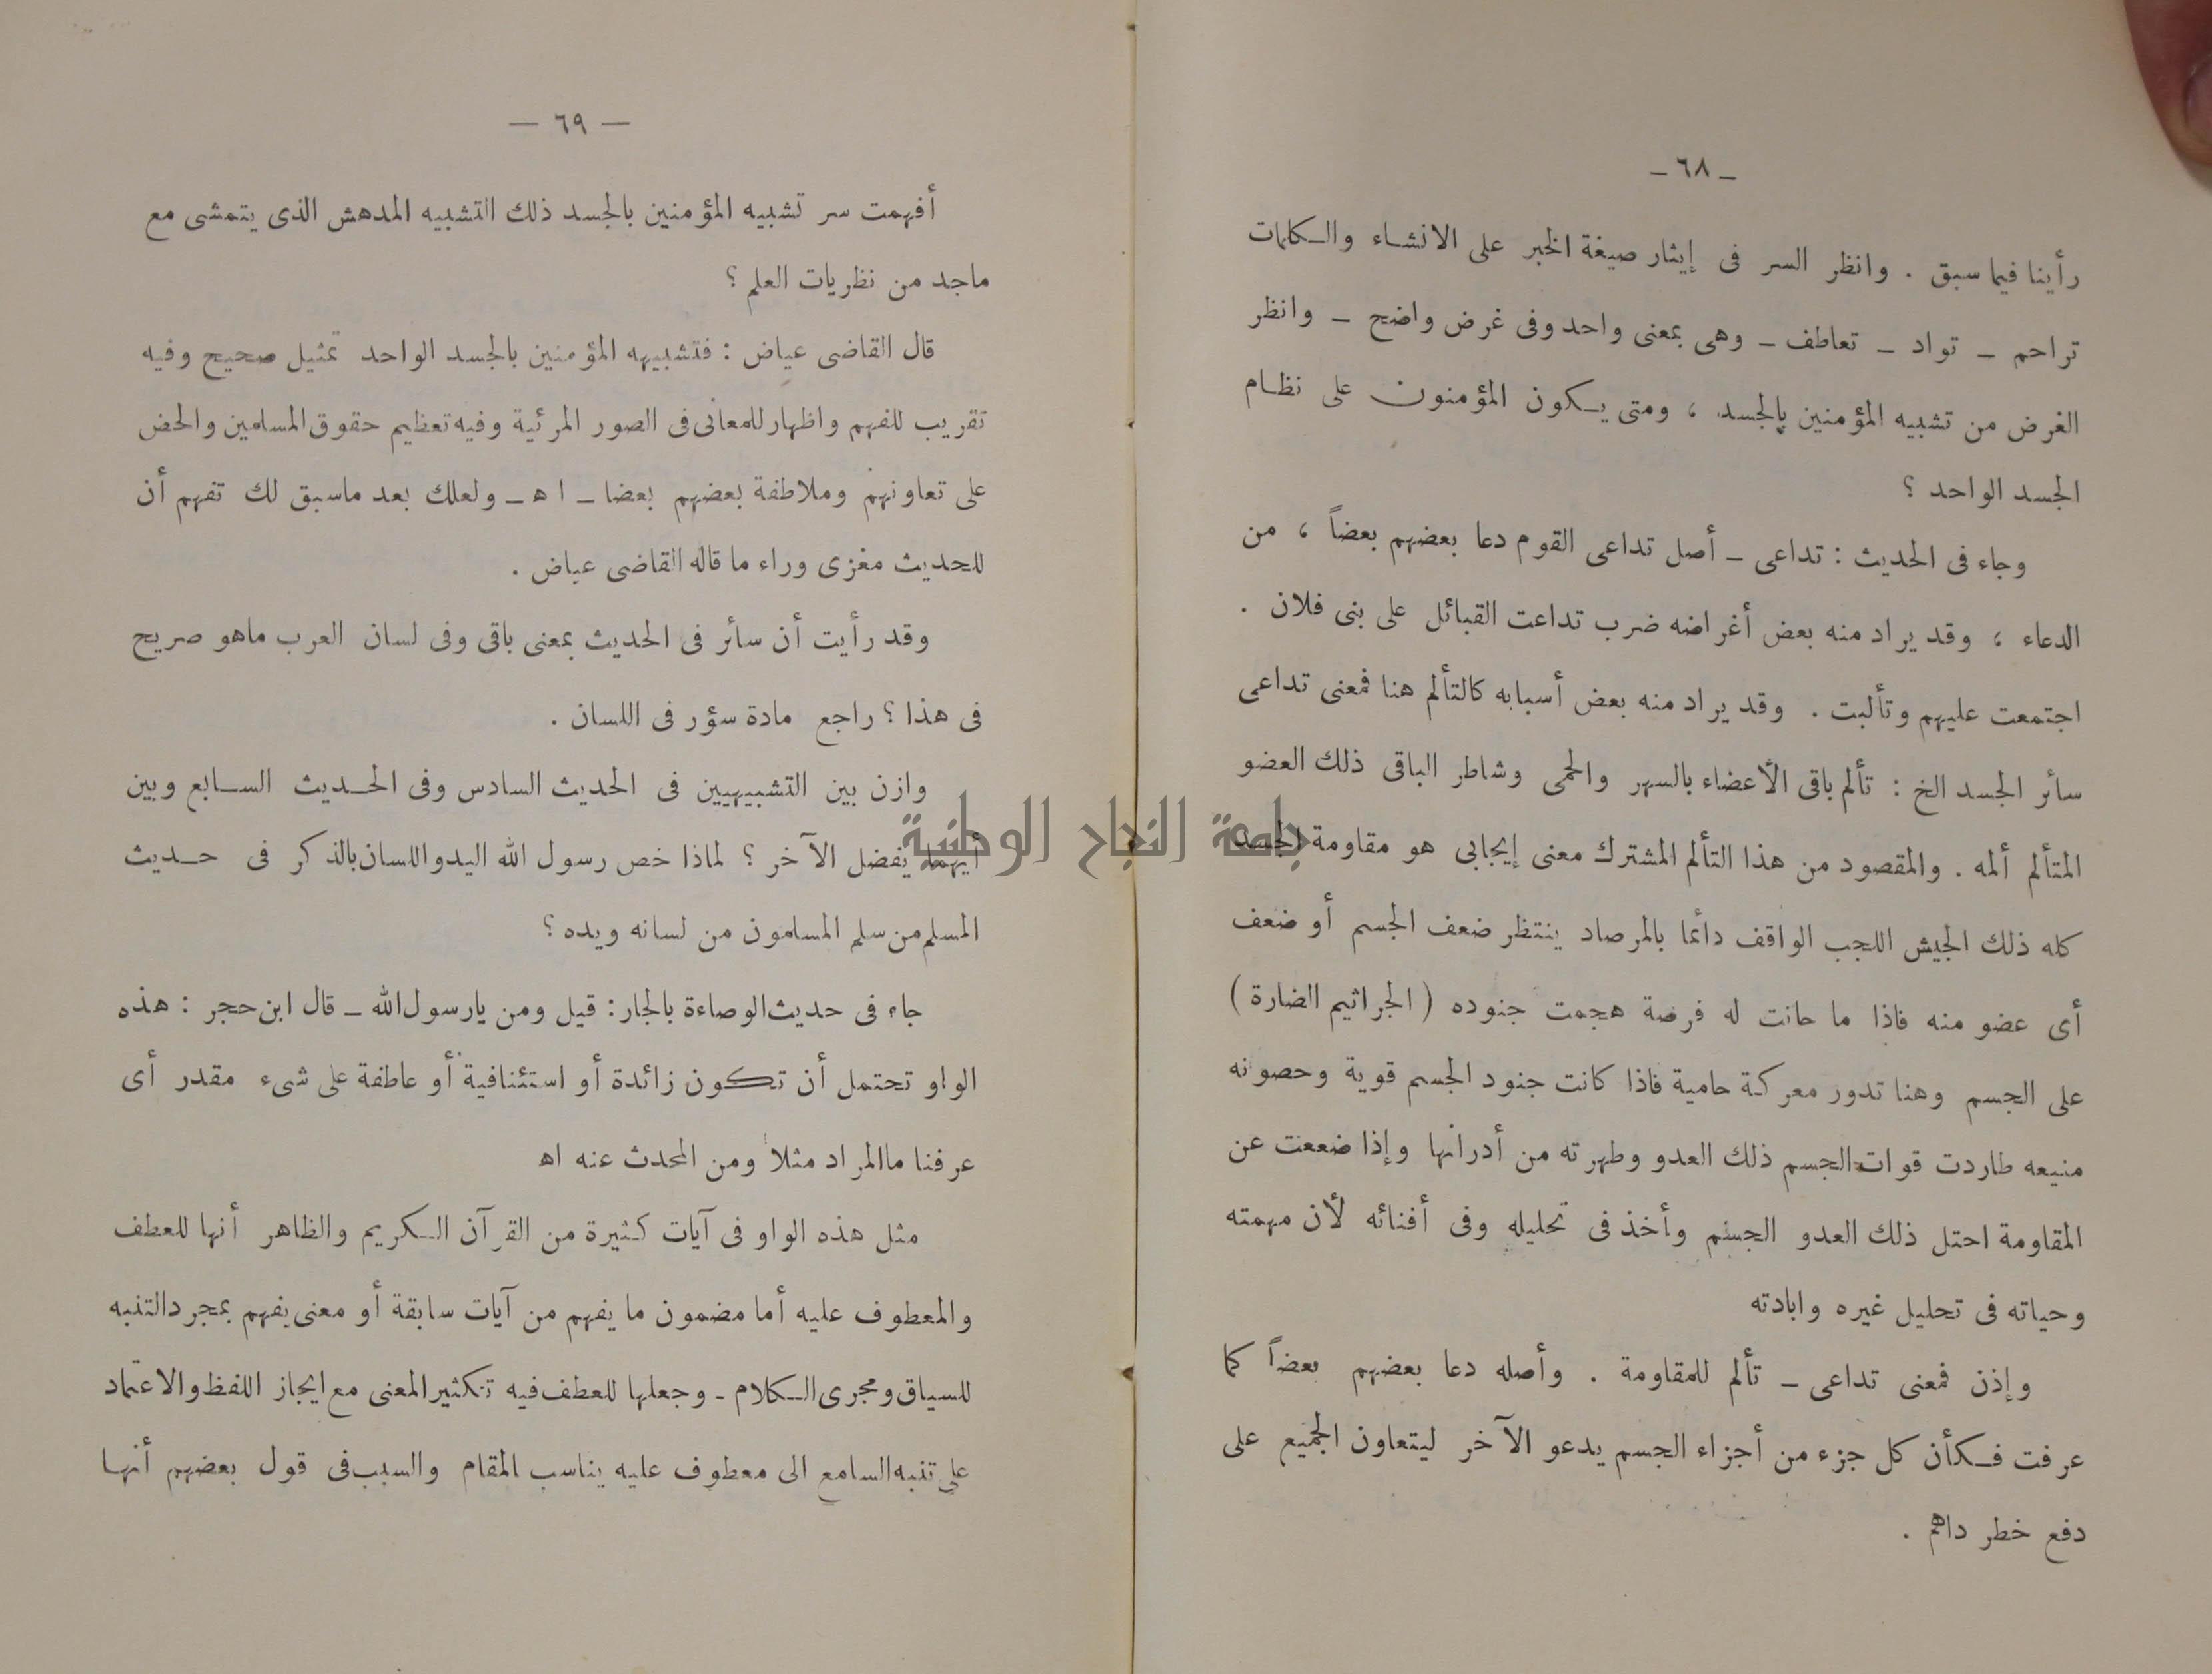 ـ ٦٨ ـ
رأينا فيما سبق . وانظر السر فى إيثار صيغة الخبر على الانشاء والكلمات
تراحم ـ تواد ـ تعاطف ـ وهى بمعنى واحد وفى غرض واضح ـ وانظر
الغرض من تشبيه المؤمنين بالجسد ، ومتى يكون المؤمنون على نظام
الجسد الواحد ؟
وجاء فى الحديث : تداعى ـ أصل تداعى القوم دعا بعضهم بعضاً ، من
الدعاء ، وقد يراد منه بعض أغراضه ضرب تداعت القبائل على بنى فلان .
اجتمعت عليهم وتألبت . وقد يراد منه بعض أسبابه كالتألم هنا فمعنى تداعى
سائر الجسد الخ : تألم باقى الأعضاء بالسهر والحمى وشاطر الباقى ذلك العضو
المتألم ألمه . والمقصود من هذا التألم المشترك معنى إيجابى هو مقاومة الجسد
كله ذلك الجيش اللجب الواقف دائما بالمرصاد ينتظر ضعف الجسم أو ضعف
أى عضو منه فاذا ما حانت له فرصة هجمت جنوده ( الجراثيم الضارة )
على الجسم وهنا تدور معركة حامية فاذا كانت جنود الجسم قوية وحصونه
منيعه طاردت قوات الجسم ذلك العدو وطهرته من أدرانها وإذا ضعفت عن
المقاومة احتل ذلك العدو الجسم وأخذ فى تحليله وفى أفنائه لأن مهمته
وحياته فى تحليل غيره وابادته
وإذن فمعنى تداعى ـ تألم للمقاومة . وأصله دعا بعضهم بعضاً كما
عرفت فكأن كل جزء من أجزاء الجسم يدعو الآخر ليتعاون الجميع على
دفع خطر داهم .
— ٦٩ —
أفهمت سر تشبيه المؤمنين بالجسد ذلك التشبيه المدهش الذى يتمشى مع
ماجد من نظريات العلم ؟
قال القاضى عياض : فتشبيهه المؤمنين بالجسد الواحد تمثيل صحيح وفيه
تقريب للفهم واظهار للمعانى فى الصور المرئية وفيه تعظيم حقوق المسلمين والحض
على تعاونهم وملاطفة بعضهم بعضا ـ ا هـ ـ ولعلك بعد ماسبق لك تفهم أن
للحديث مغزى وراء ما قاله القاضى عياض .
وقد رأيت أن سائر فى الحديث بمعنى باقى وفى لسان العرب ماهو صريح
فى هذا ؟ راجع مادة سؤر فى اللسان .
وازن بين التشبيهيين فى الحديث السادس وفى الحديث السابع وبين
أيهما يفضل الآخر ؟ لماذا خص رسول الله اليد واللسان بالذكر فى حديث
المسلم من سلم المسلمون من لسانه ويده ؟
جاء فى حديث الوصاءة بالجار : قيل ومن يارسول الله ـ قال ابن حجر : هذه
الواو تحتمل أن تكون زائدة أو استئنافية أو عاطفة على شىء مقدر أى
عرفنا ماالمراد مثلا ومن المحدث عنه اه
مثل هذه الواو فى آيات كثيرة من القرآن الكريم والظاهر أنها للعطف
والمعطوف عليه أما مضمون ما يفهم من آيات سابقة أو معنى يفهم بمجرد التنبه
للسياق ومجرى الكلام ـ وجعلها للعطف فيه تكثير المعنى مع ايجاز اللفظ والاعتماد
على تنبه السامع الى معطوف عليه يناسب المقام والسبب فى قول بعضهم أنها
جامعة النجاح الوطنية